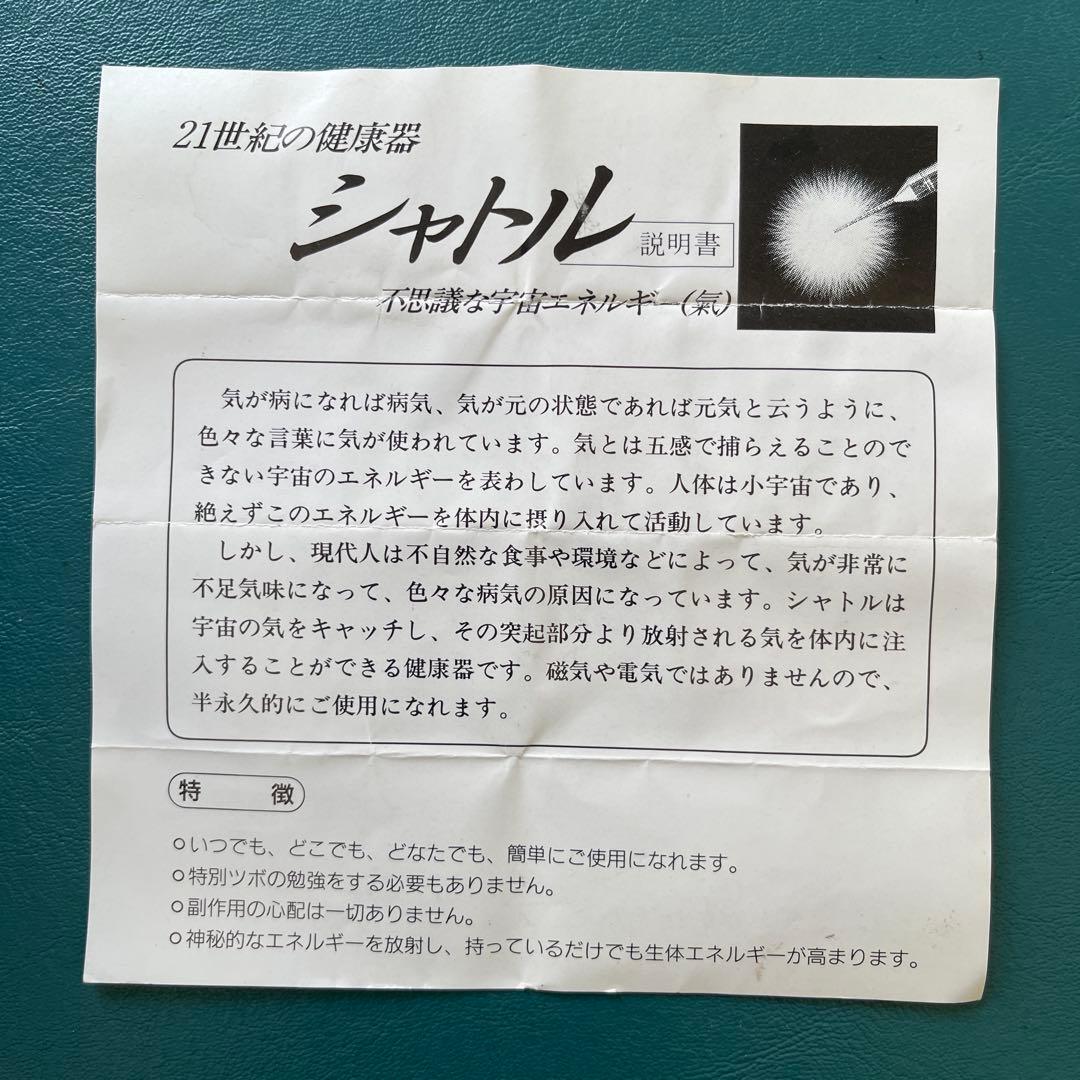 21世紀の健康器
シャトル
説明書
不思議な宇宙エネルギー(氣)
気が病になれば病気、気が元の状態であれば元気と云うように、
色々な言葉に気が使われています。気とは五感で捕らえることので
きない宇宙のエネルギーを表わしています。人体は小宇宙であり、
絶えずこのエネルギーを体内に摂り入れて活動しています。
しかし、現代人は不自然な食事や環境などによって、気が非常に
不足気味になって、色々な病気の原因になっています。シャトルは
宇宙の気をキャッチし、その突起部分より放射される気を体内に注
入することができる健康器です。磁気や電気ではありませんので、
半永久的にご使用になれます。
特 徴
○いつでも、どこでも、どなたでも、簡単にご使用になれます。
○特別ツボの勉強をする必要もありません。
○副作用の心配は一切ありません。
○神秘的なエネルギーを放射し、持っているだけでも生体エネルギーが高まります。